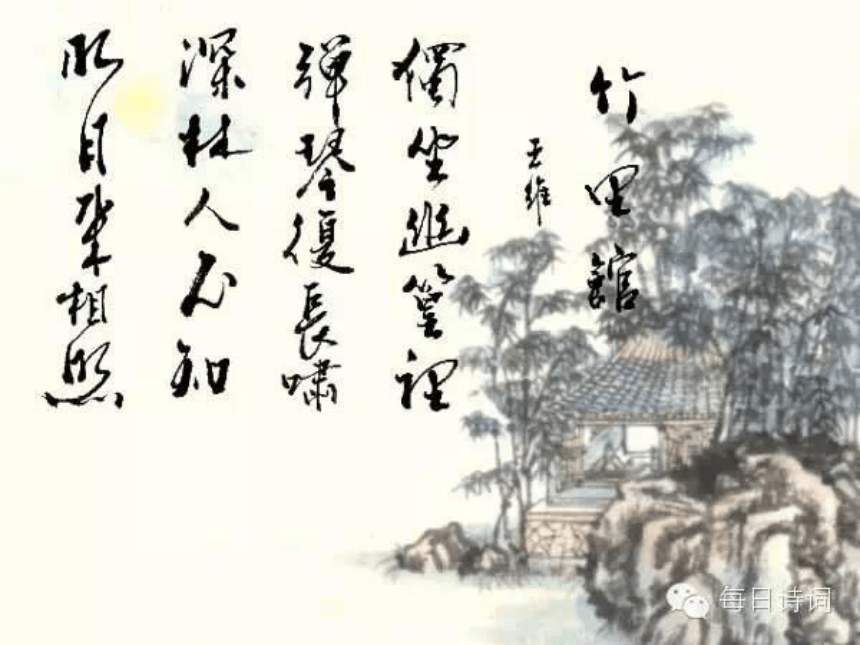 竹里館
王維
獨坐幽篁裡
彈琴復長嘯
深林人不知
明月來相照
每日诗词